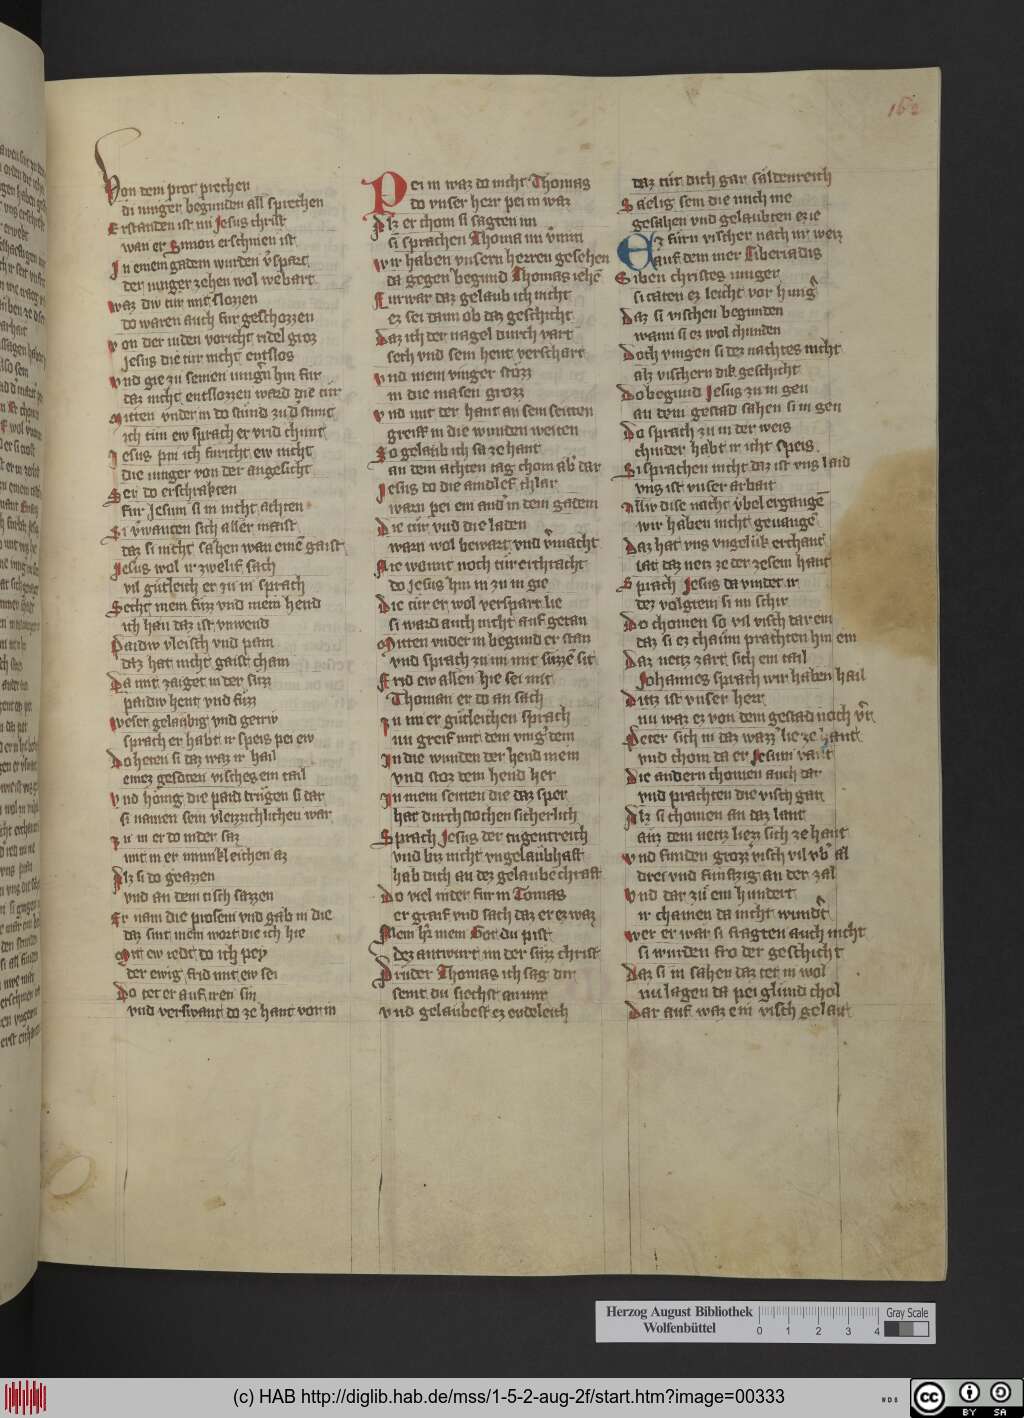 162
Von dem prot prechen
di iunger begunden all sprechen
Erstanden ist nu Jesus christ
wan er Simon erschinen ist
In einem gadem wurden v̾spart
der iunger zehen wol bewart
waz div tür mit slozzen
do waren auch für geschozzen
von der iuden voricht ridel groz
Jesus die tür nicht entslos
vnd gie zu seinen iungn̄ hin für
daz nicht entslozzen ward die tür
Mitten vnder in do stund zu d̾ stunt
ich tün ew sprach er vrid chunt
Jesus pin ich füricht ew nicht
die iunger von der angesicht
Ser do erschrakten
für Jesum si in nicht achten
Si v̾wanten sich aller maist
daz si nicht sahen wan einē gaist
Jesus wol ir zwelif sach
vil gütleich er zu in sprach
Secht mein fuzz vnd mein hend
ich han daz ist vnwend
Paidiv vleisch vnd pain
daz hat nicht gaist chain
Da mit zaiget in der süzz
paidiv hent vnd füzz
weset gelaubig vnd getriv
sprach er habt ir speis pei ew
Do heten si daz waz ir hail
einez gesoten visches ein tail
vnd hönig die paid trügen si dar
si namen sein vleizzichlichen war
zu in er do nider saz
mit in er minnikleichen az
Alz si do geazzen
vnd an dem tisch sazzen
Er nam die prosem vnd gab in die
daz sint mein wort die ich hie
Mit ew redt do ich pey
der ewig frid mit ew sei
Do tet er auf iren sin
vnd verswant do ze hant vor in
Pei in waz do nicht Thomas
do vnser herr pei in waz
Alz er chom si sagten im
si sprachen Thoma nu v̾nim
wir haben vnsern herren gesehen
da gegen begund Thomas iehē
Für war daz gelaub ich nicht
ez sei dann ob daz geschicht
Daz ich der nagel durch vart
sech vnd sein hent verschart
vnd mein vinger stözz
in die masen grozz
vnd mit der hant an sein seitten
greiff in die wunden weiten
So gelaub ich sa ze hant
an dem achten tag chom ab̾ dar
Jesus do die aindlef chlar
warn pei ein and̾ in dem gadem
Die tür vnd die laden
warn wol bewart vnd v̾macht
do Jesus hin in zu in gie
Die tür er wol verspart lie
si ward auch nicht auf getan
Mitten vnder in begund er stan
vnd sprach zu in mit süzzē sit
Frid ew allen hie sei mit
Thoman er do an sach
zu im er gütleichen sprach
nu greif mit dem ving̾ dein
In die wunden der hend mein
vnd stoz dein hend her
In mein seitten die daz sper
hat durchstochen sicherlich
Sprach Jesus der tugentreich
vnd biz nicht vngelaubhaft
hab dich an dez gelaube chraft
Do viel nider für in Tomas
er graif vnd sach daz er ez waz
Mein hr̄ mein Got du pist
Dez antwurt im der süzz christ
Prüder Thomas ich sag dir
seint du siechst an mir
vnd gelaubest ez endeleich
daz tüt dich gar säldenreich
Saelig sein die mich nie
gesahen vnd gelaubten ez ie
Ez fürn vischer nach ir weiz
auf dem mer Tiberiadis
Siben christes iunger
si taten ez leicht vor hung̾
Daz si vischen begunden
wann si ez wol chunden
Doch vingen si dez nachtes nicht
alz vischern dik geschicht
Do begund Jesus zu in gen
an dem gestad sahen si in sten
Do sprach zu in der weis
chinder habt ir icht speis
Si sprachen nicht daz ist vns laid
vns ist vnser arbait
Allir dise nacht v̾bel ergangē
wir haben nicht geuangē
Daz hat vns vngelük erchant
lat daz netz ze der zesem hant
Sprach Jesus da vindet ir
dez volgten si im schir
Do chomen so vil visch dar ein
daz si ez chaum prachten hin ein
Daz netz zart sich ein tail
Johannes sprach wir haben hail
Ditz ist vnser herr
nu waz ez von dem gestad noch v̾r
Peter sich in daz wazz̾ lie ze hant
vnd chom da er Jesum vant
Die andern chomen auch dar
vnd prachten die visch gar
Alz si chomen an daz lant
auz dem netz liezz sich ze hant
vnd funden grozz̾ visch vil vb̾ al
drei vnd fümfzig an der zal
Vnd dar zü ein hundert
ir chainen da nicht wundt̾
wer er war si fragten auch nicht
si wurden fro der geschicht
Daz si in sahen daz tet in wol
nu lagen da pei glünd chol
Dar auf waz ein visch gelait
Herzog August Bibliothek
Wolfenbüttel
0 1 2 3 4
Gray Scale
(c) HAB http://diglib.hab.de/mss/1-5-2-aug-2f/start.htm?image=00333
WDB
cc BY SA